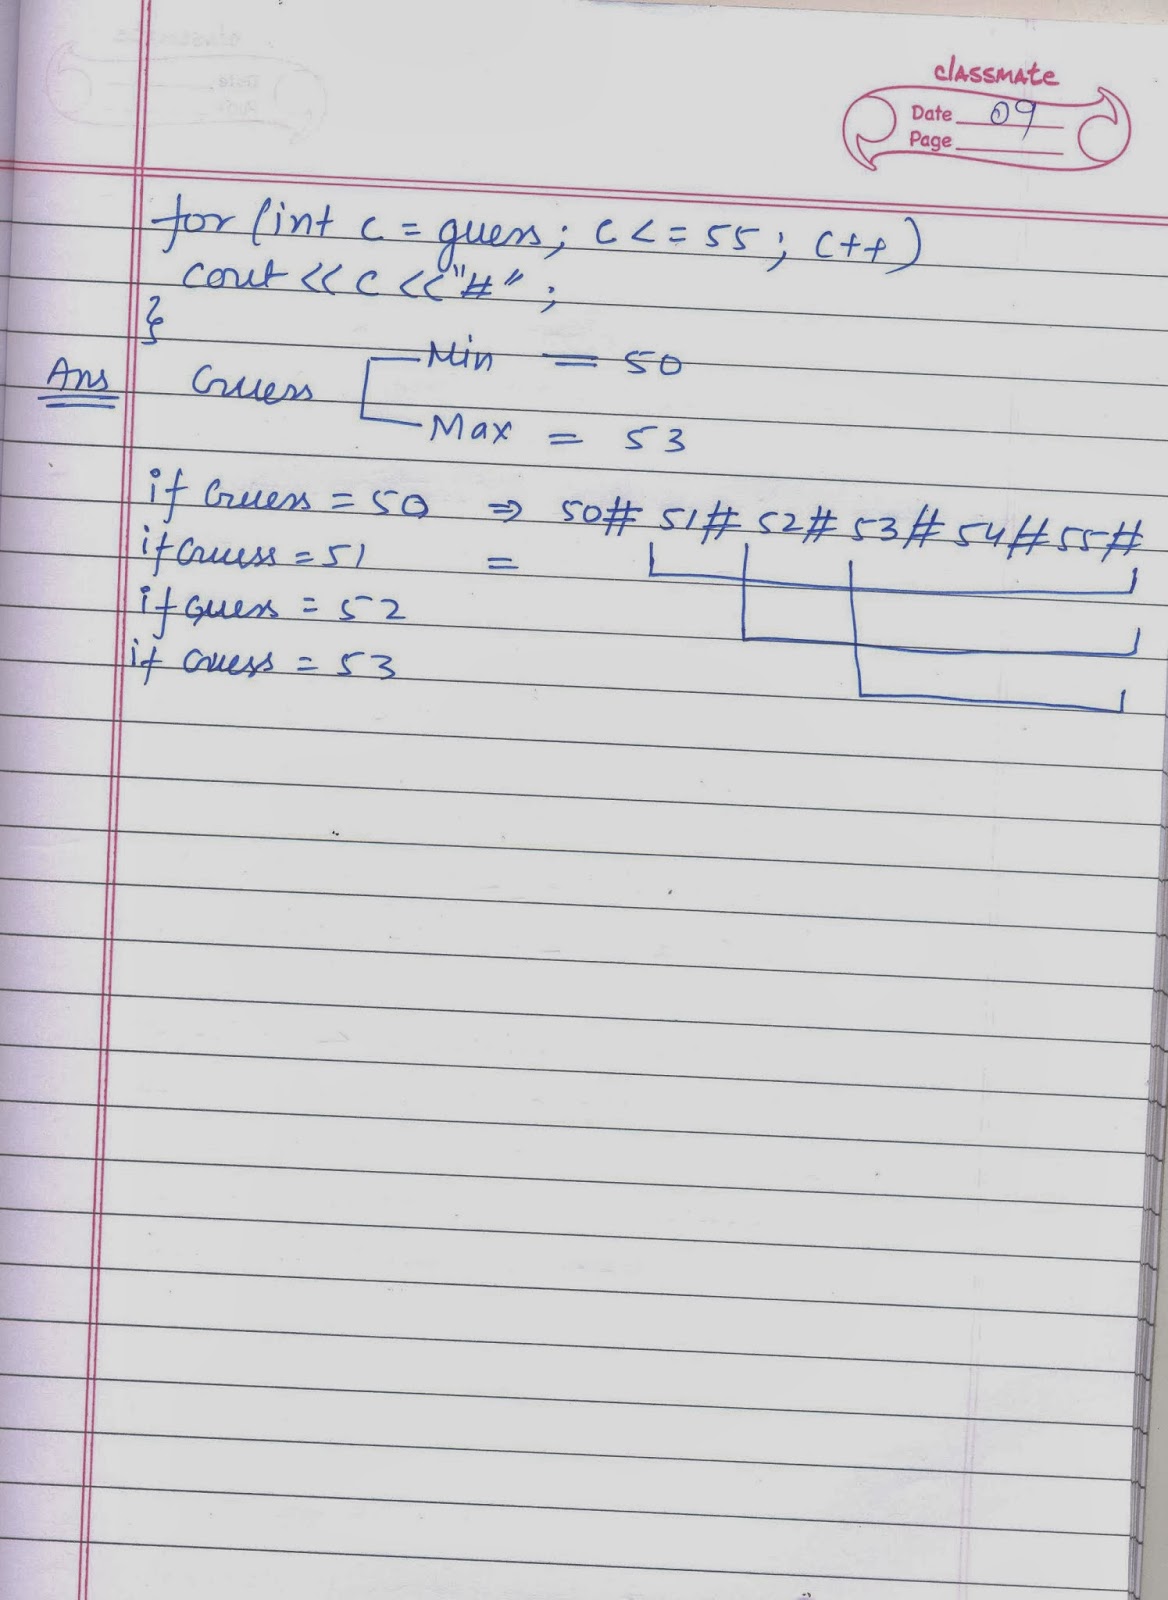 classmate
Date 09
Page
for (int c = guess; c <= 55; c++)
cout << c << "#" ;
}
Ans Guess Min = 50
Max = 53
if Guess = 50 ⇒ 50# 51# 52# 53# 54# 55#
if Guess = 51 =
if Guess = 52
if Guess = 53